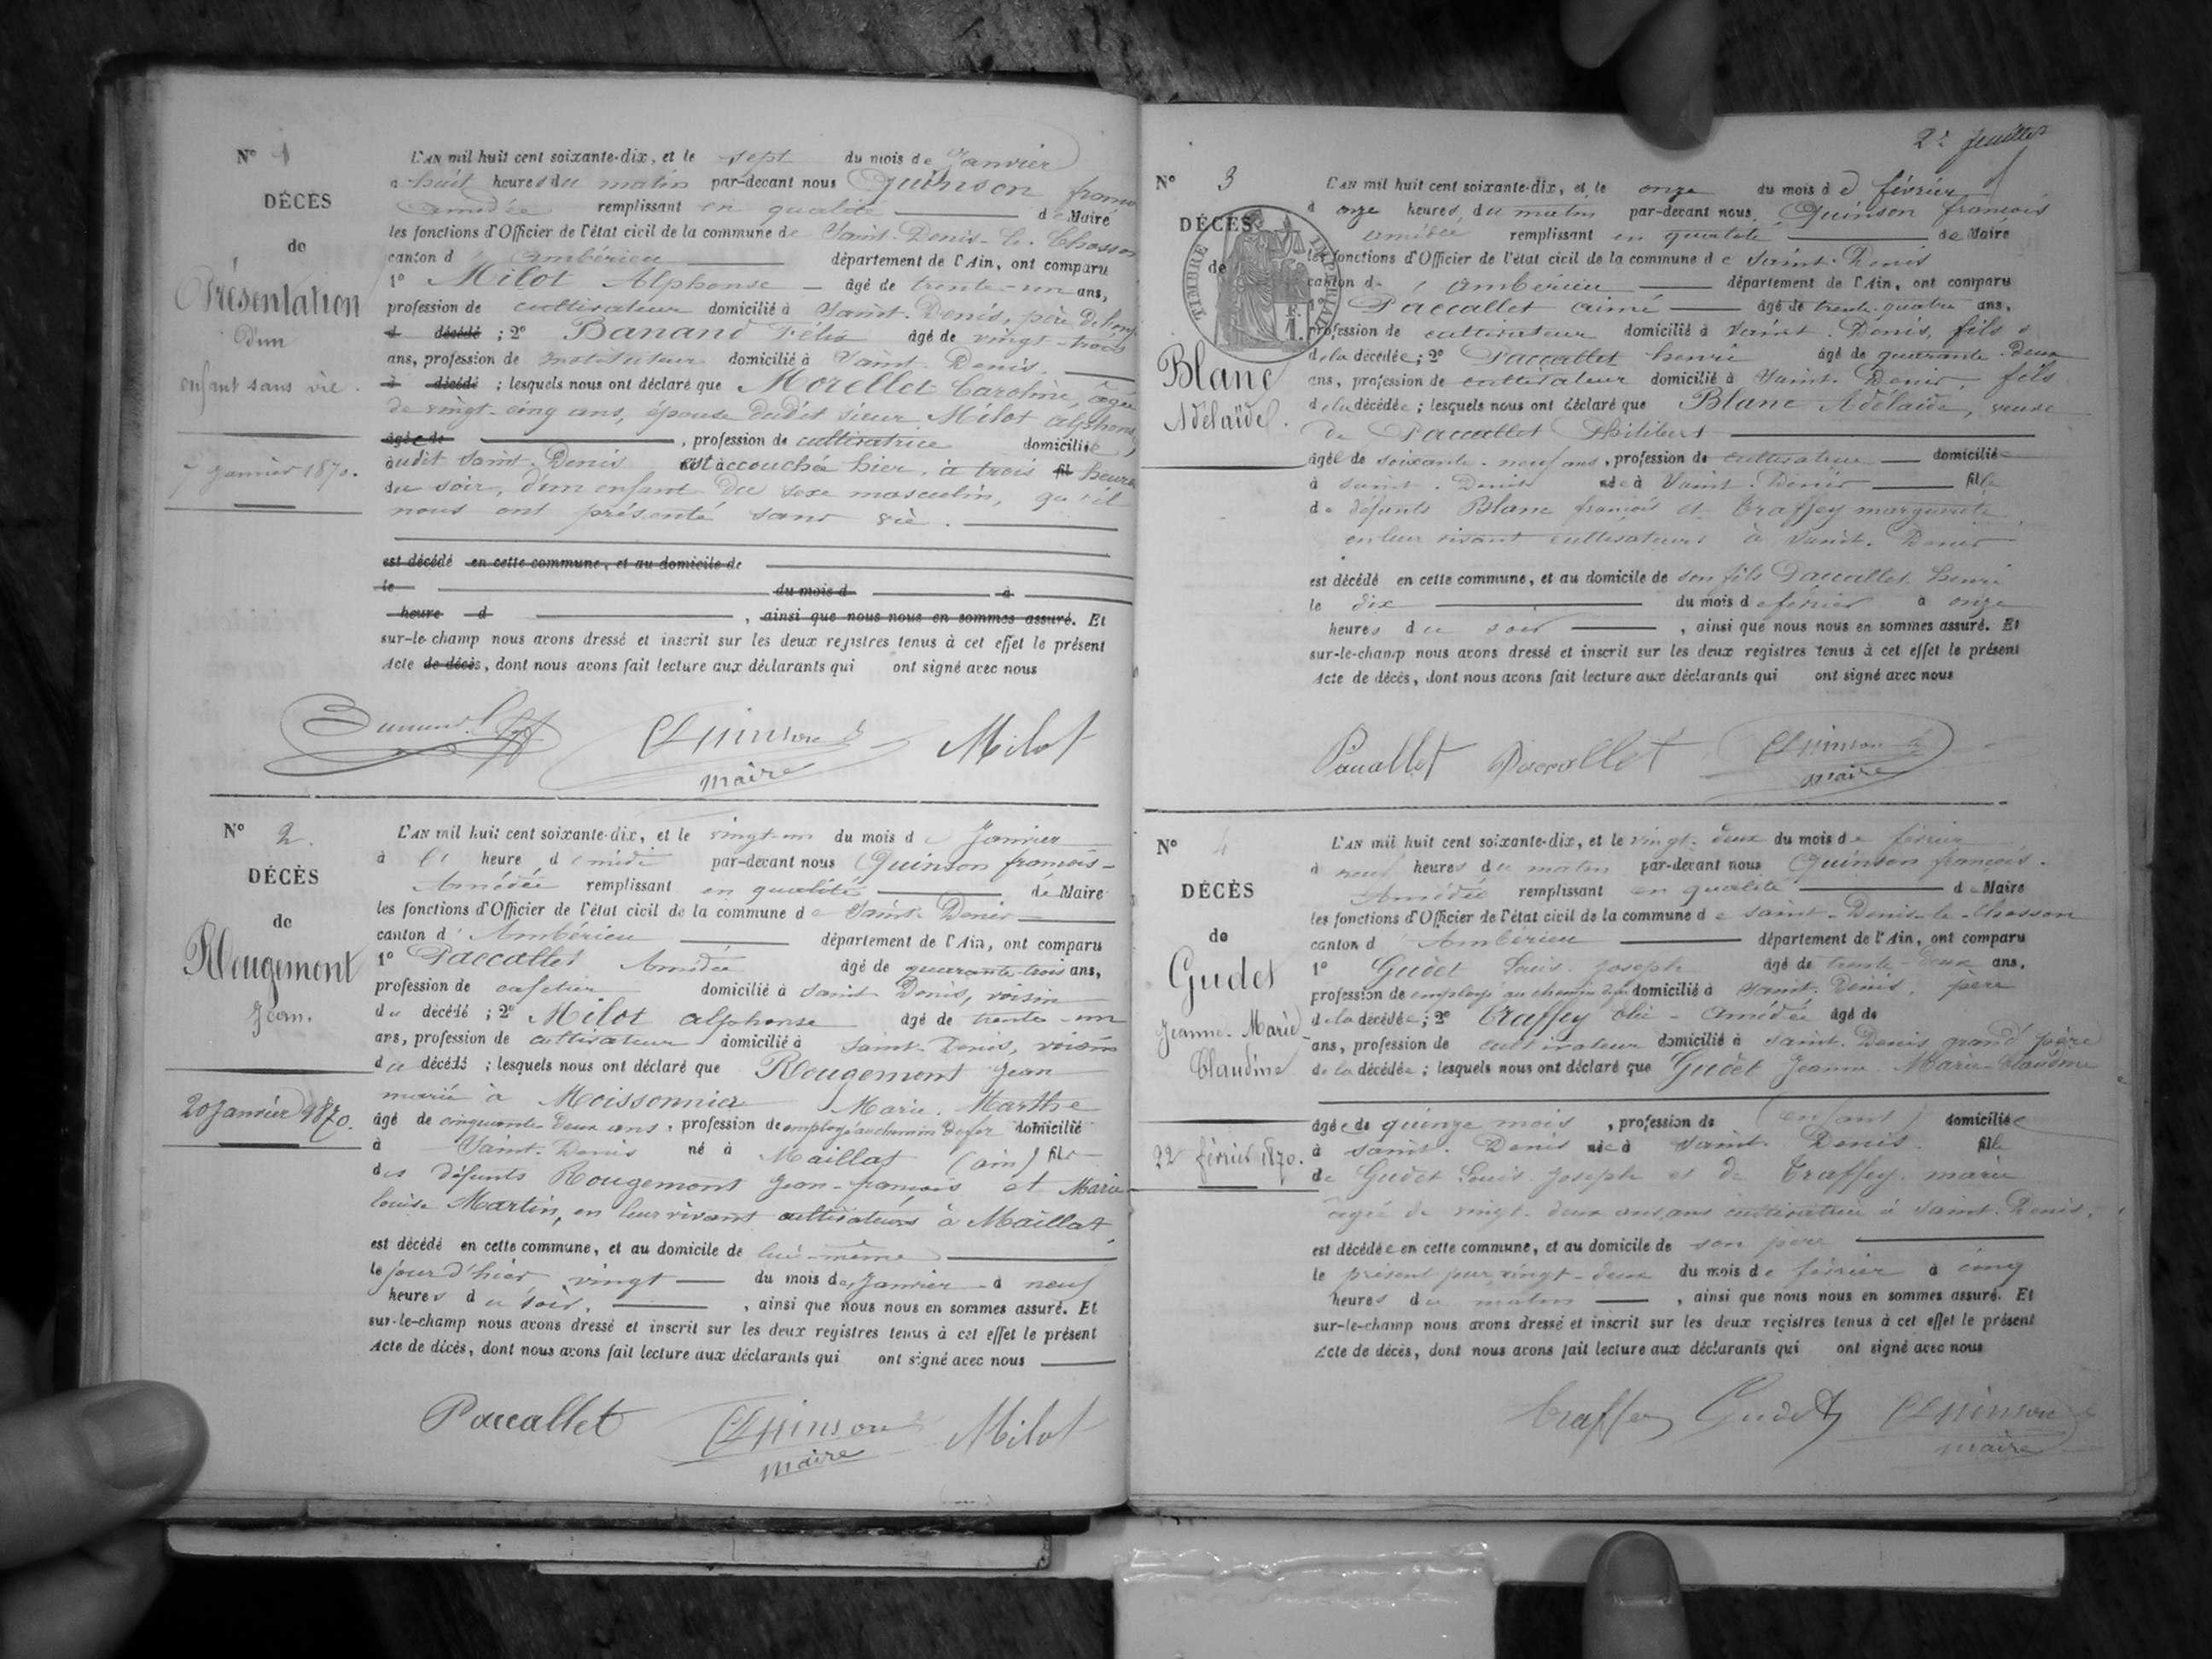 N° 1
DÉCÈS
de
Présentation
D'un
enfant sans vie.
7 Janvier 1870.
L'AN mil huit cent soixante-dix, et le sept du mois de Janvier
à huit heures du matin par-devant nous Quinson franç
Amédée remplissant en qualité de Maire
les fonctions d'Officier de l'état civil de la commune de Saint-Denis-le-Chosson
canton d'Ambérieu département de l'Ain, ont comparu
1° Milot Alphonse âgé de trente-un ans,
profession de cultivateur domicilié à Saint-Denis, père de l'enf
d décédé ; 2° Banand Félix âgé de vingt-trois
ans, profession de instituteur domicilié à Saint Denis.
d décédé ; lesquels nous ont déclaré que Morellet Caroline, âgée
de vingt-cinq ans, épouse dudit sieur Milot alphonse
âgée de , profession de cultivatrice domiciliée
audit Saint-Denis est accouchée hier, à trois fil heures
du soir, d'un enfant du sexe masculin, qu'il
nous ont présenté sans vie.
est décédé en cette commune, et au domicile de
le du mois d à
heure d , ainsi que nous nous en sommes assuré. Et
sur-le-champ nous avons dressé et inscrit sur les deux registres tenus à cet effet le présent
Acte de décès, dont nous avons fait lecture aux déclarants qui ont signé avec nous
Quinson Milot
maire
N° 2.
DÉCÈS
de
Rougemont
Jean.
20 Janvier 1870.
L'AN mil huit cent soixante-dix, et le vingt-un du mois de Janvier
à heure de midi par-devant nous Quinson françois-
Amédée remplissant en qualité de Maire
les fonctions d'Officier de l'état civil de la commune de Saint-Denis
canton d'Ambérieu département de l'Ain, ont comparu
1° Paccallet Amédée âgé de quarante-trois ans,
profession de cafetier domicilié à Saint Denis, voisin
du décédé ; 2° Milot alphonse âgé de trente-un
ans, profession de cultivateur domicilié à Saint-Denis, voisin
du décédé ; lesquels nous ont déclaré que Rougemont Jean
marié à Moissonnier Marie-Marthe
âgé de cinquante-deux ans, profession de employé au chemin de fer domicilié
à Saint-Denis né à Maillat (ain) fils
des défunts Rougemont Jean-françois et Marie
louise Martin, en leur vivant cultivateurs à Maillat,
est décédé en cette commune, et au domicile de lui-même
le jour d'hier vingt du mois de Janvier à neuf
heures du soir, , ainsi que nous nous en sommes assuré. Et
sur-le-champ nous avons dressé et inscrit sur les deux registres tenus à cet effet le présent
Acte de décès, dont nous avons fait lecture aux déclarants qui ont signé avec nous
Paccallet Quinson Milot
maire
2e feuillet
N° 3
DÉCÈS
de
TIMBRE IMPÉRIAL
Blanc
Adélaïde.
L'AN mil huit cent soixante-dix, et le onze du mois de février
à onze heures du matin par-devant nous, Quinson françois
amédée remplissant en qualité de Maire
les fonctions d'Officier de l'état civil de la commune de Saint-Denis
canton d'Ambérieu département de l'Ain, ont comparu
1° Paccallet aimé âgé de trente-quatre ans,
profession de cultivateur domicilié à Saint-Denis, fils
de la décédée ; 2° Paccallet henri âgé de quarante-deux
ans, profession de cultivateur domicilié à Saint-Denis, fils
de la décédée ; lesquels nous ont déclaré que Blanc Adélaïde, veuve
de Paccallet Philibert
âgée de soixante-neuf ans, profession de cultivateur domiciliée
à Saint-Denis née à Saint-Denis fille
de défunts Blanc françois et Traffey marguerite
en leur vivant cultivateurs à Saint-Denis
est décédé en cette commune, et au domicile de son fils Paccallet henri
le dix du mois de février à onze
heures du soir , ainsi que nous nous en sommes assuré. Et
sur-le-champ nous avons dressé et inscrit sur les deux registres tenus à cet effet le présent
Acte de décès, dont nous avons fait lecture aux déclarants qui ont signé avec nous
Pacallet Paccallet Quinson
maire
N° 4
DÉCÈS
de
Gudet
Jeanne-Marie
Claudine
22 février 1870.
L'AN mil huit cent soixante-dix, et le vingt-deux du mois de février
à neuf heures du matin par-devant nous Quinson françois-
Amédée remplissant en qualité de Maire
les fonctions d'Officier de l'état civil de la commune de Saint-Denis-le-Chosson
canton d'Ambérieu département de l'Ain, ont comparu
1° Gudet Louis-Joseph âgé de trente-deux ans,
profession de employé au chemin de fer domicilié à Saint-Denis, père
de la décédée ; 2° Traffey Amédée âgé de
ans, profession de cultivateur domicilié à Saint-Denis grand père
de la décédée ; lesquels nous ont déclaré que Gudet Jeanne-Marie-Claudine
âgée de quinze mois , profession de (enfant) domiciliée
à Saint-Denis née à Saint-Denis fille
de Gudet Louis Joseph et de Traffey marie
âgée de vingt-deux ans, cultivatrice à Saint-Denis,
est décédée en cette commune, et au domicile de son père
le présent jour vingt-deux du mois de février à cinq
heures du matin , ainsi que nous nous en sommes assuré. Et
sur-le-champ nous avons dressé et inscrit sur les deux registres tenus à cet effet le présent
Acte de décès, dont nous avons fait lecture aux déclarants qui ont signé avec nous
Traffey Gudet Quinson
maire